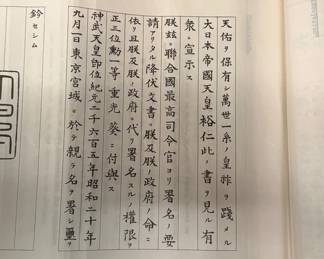 天佑ヲ保有シ萬世一系ノ皇祚ヲ踐メル
大日本帝國天皇裕仁此ノ書ヲ見ル有
衆ニ宣示ス
朕茲ニ聯合國最高司令官ヨリ署名ノ要
請アリタル降伏文書ニ朕及朕ノ政府ノ命ニ
依リ且朕及朕ノ政府ニ代リ署名スルノ權限ヲ
正三位勳一等重光葵ニ付與ス
神武天皇即位紀元二千六百五年昭和二十年
九月一日東京宮城ニ於テ親ラ名ヲ署シ璽ヲ
鈐セシム